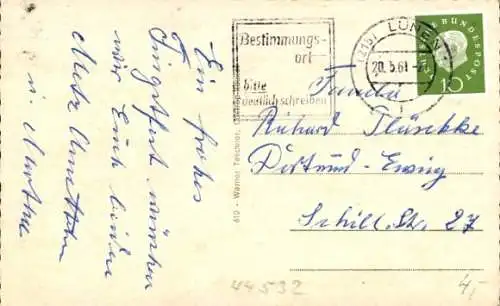 Ein frohes
Pfingstfest wünschen
wir Euch beiden
u.
Bestimmungs-
ort
bitte
deutlich schreiben
(21b) LÜNEN
20.5.61
BUNDESPOST
10
Familie
Richard
Dortmund-Eving
Schill. Str. 27
619 - Werner Teschner,
44532
4,-